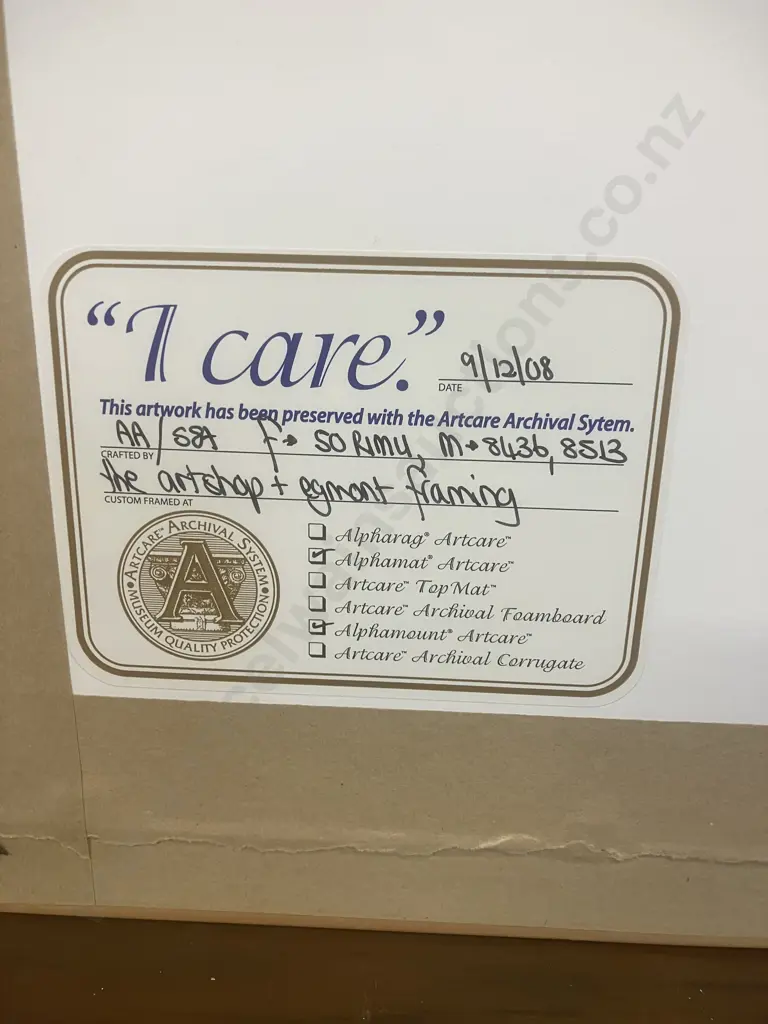 “I care.”
9/12/08
DATE
This artwork has been preserved with the Artcare Archival Sytem.
AA/SSA F→ SO RIMU, M→8436, 8513
CRAFTED BY
the artshop + egmont framing
CUSTOM FRAMED AT
ARTCARE™ ARCHIVAL SYSTEM
A
MUSEUM QUALITY PROTECTION
Alpharag® Artcare™
Alphamat® Artcare™
Artcare™ TopMat™
Artcare™ Archival Foamboard
Alphamount® Artcare™
Artcare™ Archival Corrugate